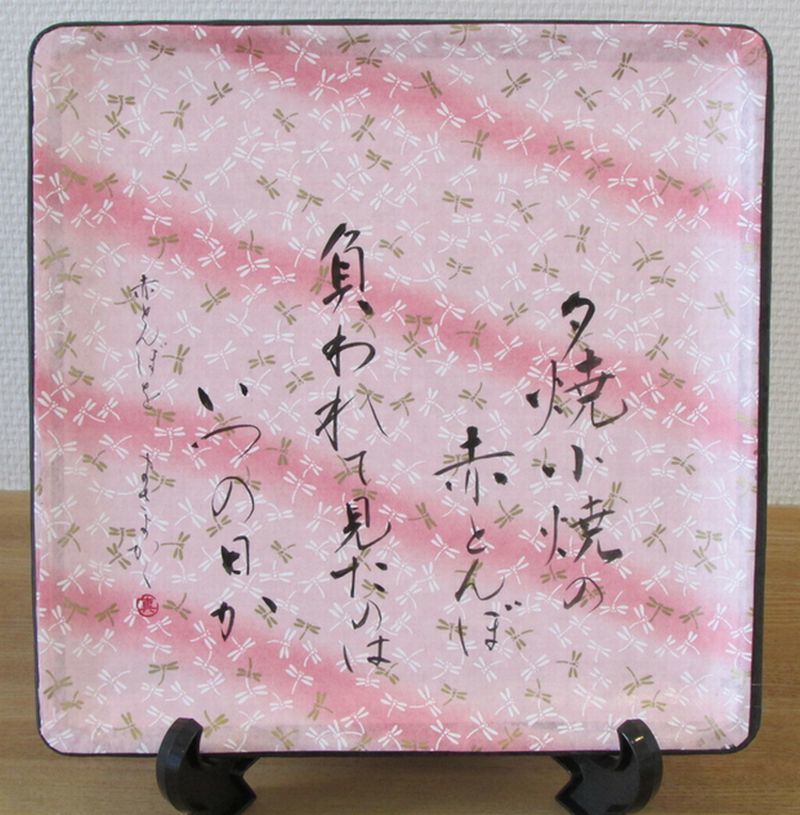 夕焼小焼の
赤とんぼ
負われて見たのは
いつの日か
赤とんぼを